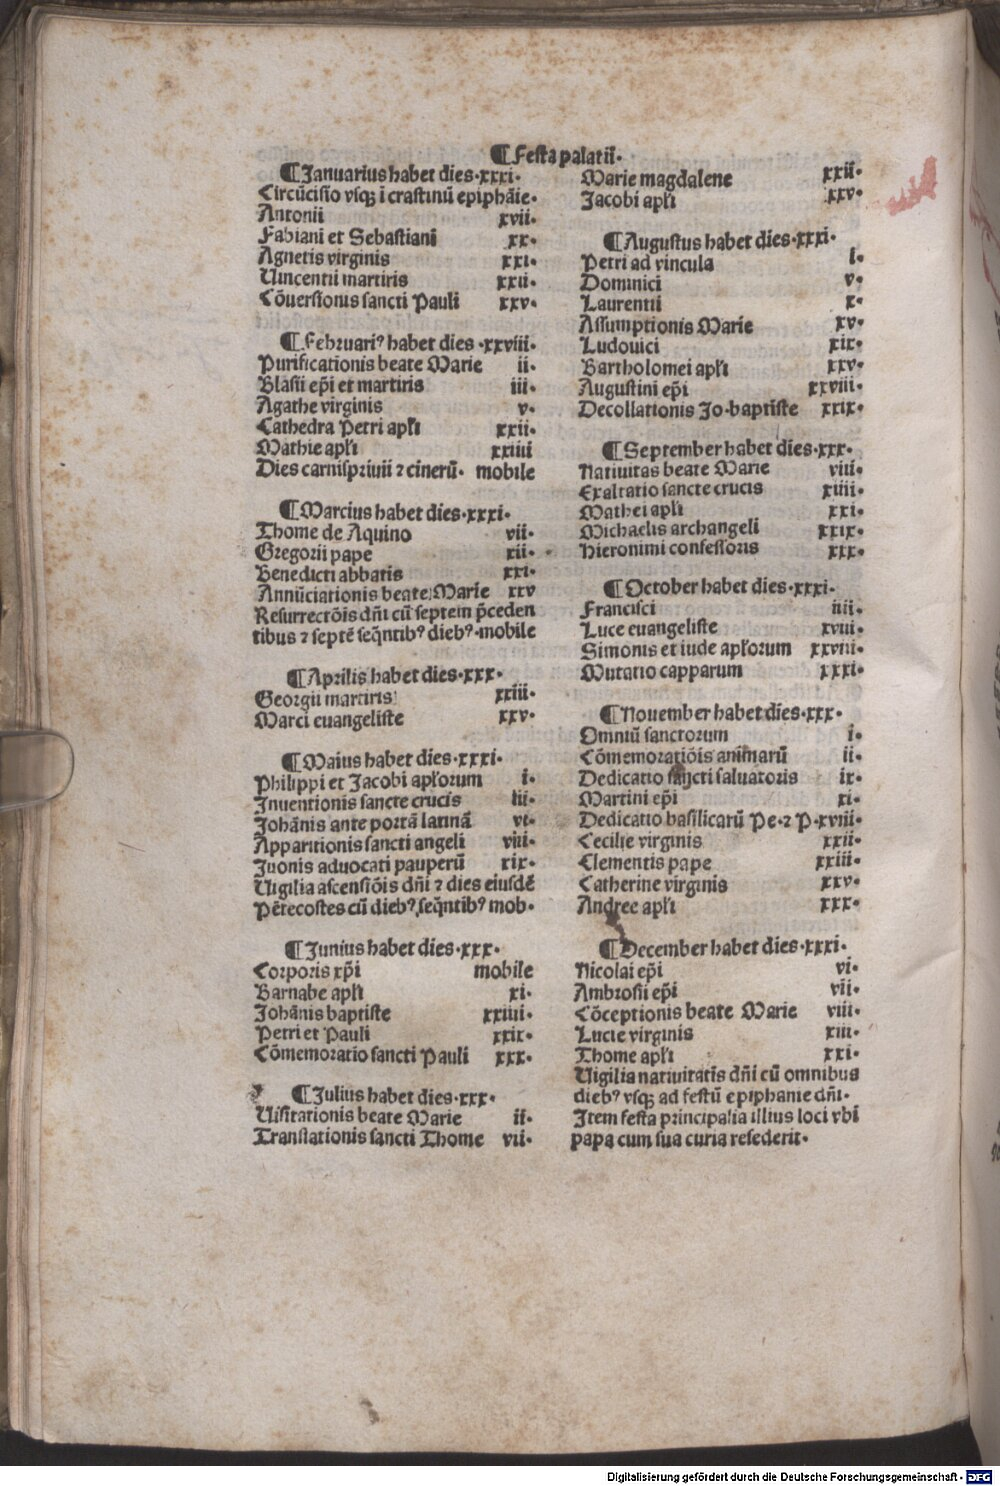 ¶Festa palatii·
¶Januarius habet dies·xxxi·
Circũcisio vsqꝫ ĩ crastinũ epiphãie·
Antonii xvii·
Fabiani et Sebastiani xx·
Agnetis virginis xxi·
Uincentii martiris xxii·
Cõuersionis sancti Pauli xxv·
¶Februariꝰ habet dies ·xxviii·
Purificationis beate Marie ii·
Blasii ep̃i et martiris iii·
Agathe virginis v·
Cathedra Petri apl̃i xxii·
Mathie apl̃i xxiiii
Dies carnispriuii ⁊ cinerũ· mobile
¶Marcius habet dies·xxxi·
Thome de Aquino vii·
Gregorii pape xii·
Benedicti abbatis xxi·
Annũciationis beate Marie xxv
Resurrectõis dñi cũ septem p̃ceden
tibus ⁊ septẽ seq̃ntibꝰ diebꝰ·mobile
¶Aprilis habet dies·xxx·
Georgii martiris xxiii·
Marci euangeliste xxv·
¶Maius habet dies·xxxi·
Philippi et Jacobi apl̃orum i·
Inuentionis sancte crucis iii·
Johãnis ante portã latinã vi·
Apparitionis sancti angeli viii·
Juonis aduocati pauperũ xix·
Uigilia ascensiõis dñi ⁊ dies eiusdẽ
Pẽtecostes cũ diebꝰ seq̃ntibꝰ mob·
¶Junius habet dies·xxx·
Corporis xp̃i mobile
Barnabe apl̃i xi·
Johãnis baptiste xxiiii·
Petri et Pauli xxix·
Cõmemoratio sancti Pauli xxx·
¶Julius habet dies·xxx·
Uisitationis beate Marie ii·
Translationis sancti Thome vii·
Marie magdalene xxii·
Jacobi apl̃i xxv·
¶Augustus habet dies·xxxi·
Petri ad vincula i·
Dominici v·
Laurentii x·
Assumptionis Marie xv·
Ludouici xix·
Bartholomei apl̃i xxv·
Augustini ep̃i xxviii·
Decollationis Jo·baptiste xxix·
¶September habet dies·xxx·
Natiuitas beate Marie viii·
Exaltatio sancte crucis xiiii·
Mathei apl̃i xxi·
Michaelis archangeli xxix·
Hieronimi confessoris xxx·
¶October habet dies·xxxi·
Francisci iiii·
Luce euangeliste xviii·
Simonis et iude apl̃orum xxviii·
Mutatio capparum xxxi·
¶Nouember habet dies·xxx·
Omniũ sanctorum i·
Cõmemoratiõis animarũ ii·
Dedicatio sancti saluatoris ix·
Martini ep̃i xi·
Dedicatio basilicarũ Pe·⁊ P·xviii·
Cecilie virginis xxii·
Clementis pape xxiii·
Catherine virginis xxv·
Andree apl̃i xxx·
¶December habet dies·xxxi·
Nicolai ep̃i vi·
Ambrosii ep̃i vii·
Cõceptionis beate Marie viii·
Lucie virginis xiii·
Thome apl̃i xxi·
Uigilia natiuitatis dñi cũ omnibus
diebꝰ vsqꝫ ad festũ epiphanie dñi·
Item festa principalia illius loci vbi
papa cum sua curia resederit·
Digitalisierung gefördert durch die Deutsche Forschungsgemeinschaft - DFG